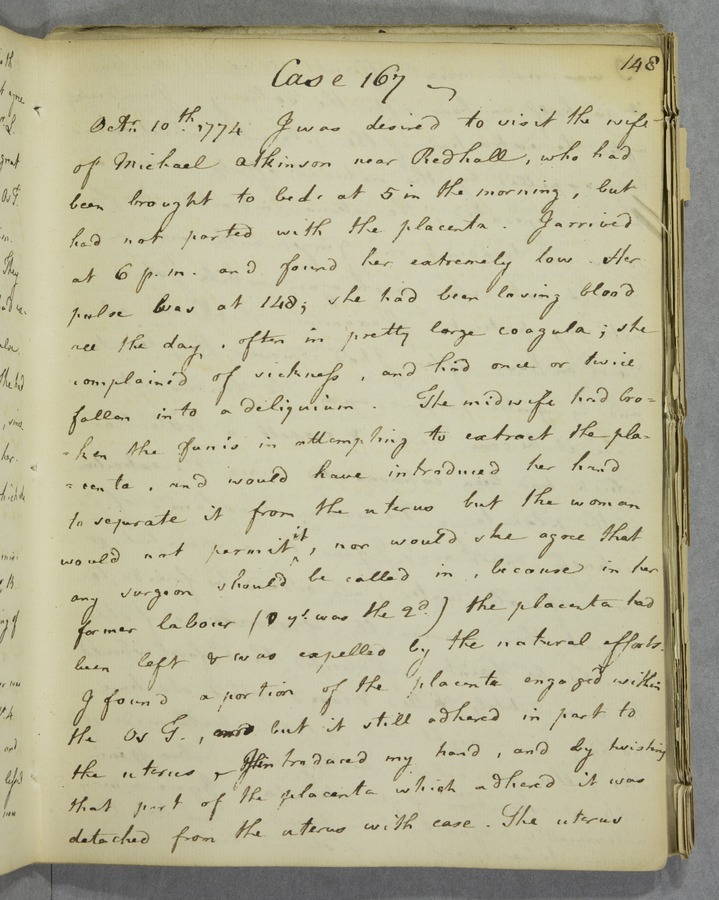 148
Case 167
Octr. 10th. 1774 I was desired to visit the wife
of Michael Atkinson near Redhall, who had
been brought to bed at 5 in the morning, but
had not parted with the placenta. I arrived
at 6 p.m. and found her extremely low. Her
pulse was at 148; she had been losing blood
all the day, often in pretty large coagula; she
complained of sickness, and had once or twice
fallen into a deliquium. The midwife had bro=
=ken the funis in attempting to extract the pla=
=centa, and would have introduced her hand
to separate it from the uterus but the woman
would not permit it, nor would she agree that
any surgeon should be called in, because in her
former labour (ys. was the 2d.) the placenta had
been left & was expelled by the natural efforts.
I found a portion of the placenta engaged within
the Os T., but it still adhered in part to
the uterus & I introduced my hand, and by twisting
that part of the placenta which adhered it was
detached from the uterus with ease. The uterus